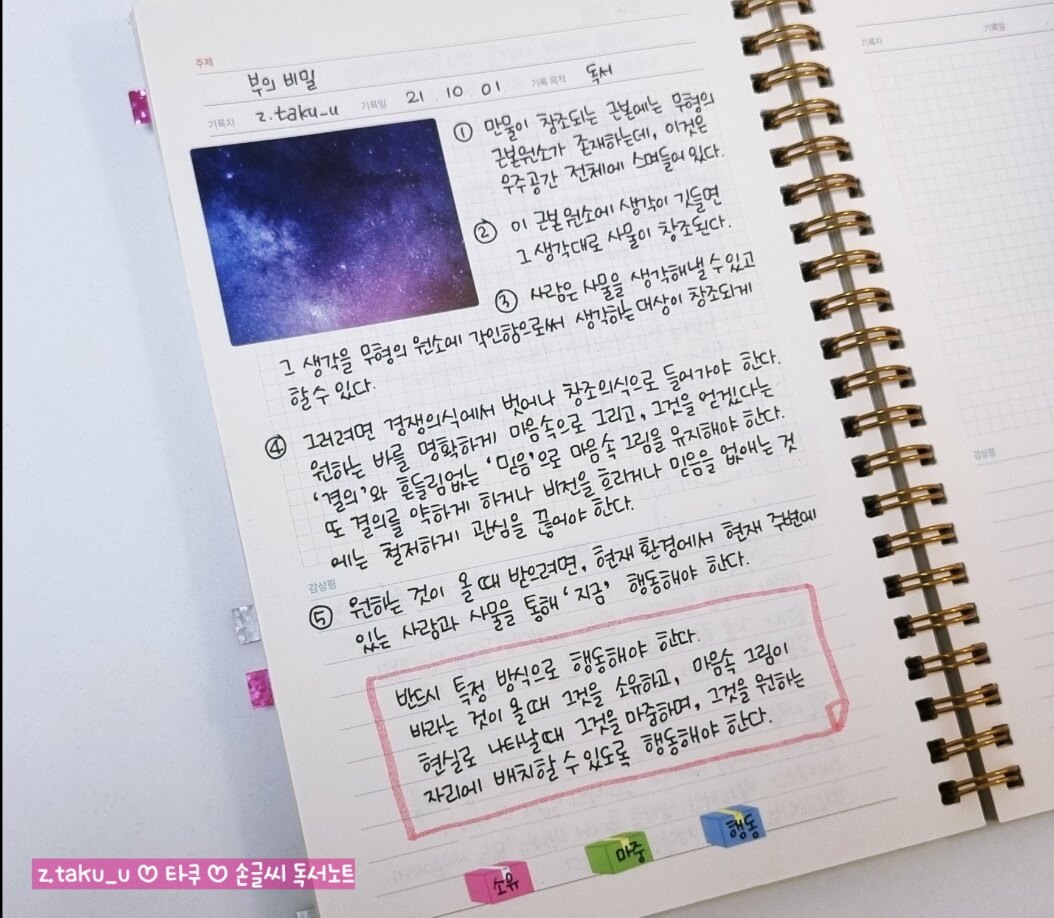 주제
부의 비밀
기록자 z.taku_u 기록일 21 . 10 . 01. 기록 목적 독서
① 만물이 창조되는 근본에는 무형의
근본원소가 존재하는데, 이것은
우주공간 전체에 스며들어 있다.
② 이 근본 원소에 생각이 깃들면
그 생각대로 사물이 창조된다.
③ 사람은 사물을 생각해낼 수 있고
그 생각을 무형의 원소에 각인함으로써 생각하는 대상이 창조되게
할 수 있다.
④ 그러려면 경쟁의식에서 벗어나 창조의식으로 들어가야 한다.
원하는 바를 명확하게 마음속으로 그리고, 그것을 얻겠다는
'결의'와 흔들림없는 '믿음'으로 마음속 그림을 유지해야 한다.
또 결의를 약하게 하거나 비전을 흐리거나 믿음을 없애는 것
에는 철저하게 관심을 끊어야 한다.
감상평
⑤ 원하는 것이 올 때 받으려면, 현재 환경에서 현재 주변에
있는 사람과 사물을 통해 '지금' 행동해야 한다.
반드시 특정 방식으로 행동해야 한다.
바라는 것이 올 때 그것을 소유하고, 마음속 그림이
현실로 나타날 때 그것을 마중하며, 그것을 원하는
자리에 배치할 수 있도록 행동해야 한다.
소유 마중 행동
기록자 기록일
감상평
z.taku_u ♡ 타쿠 ♡ 손글씨 독서노트